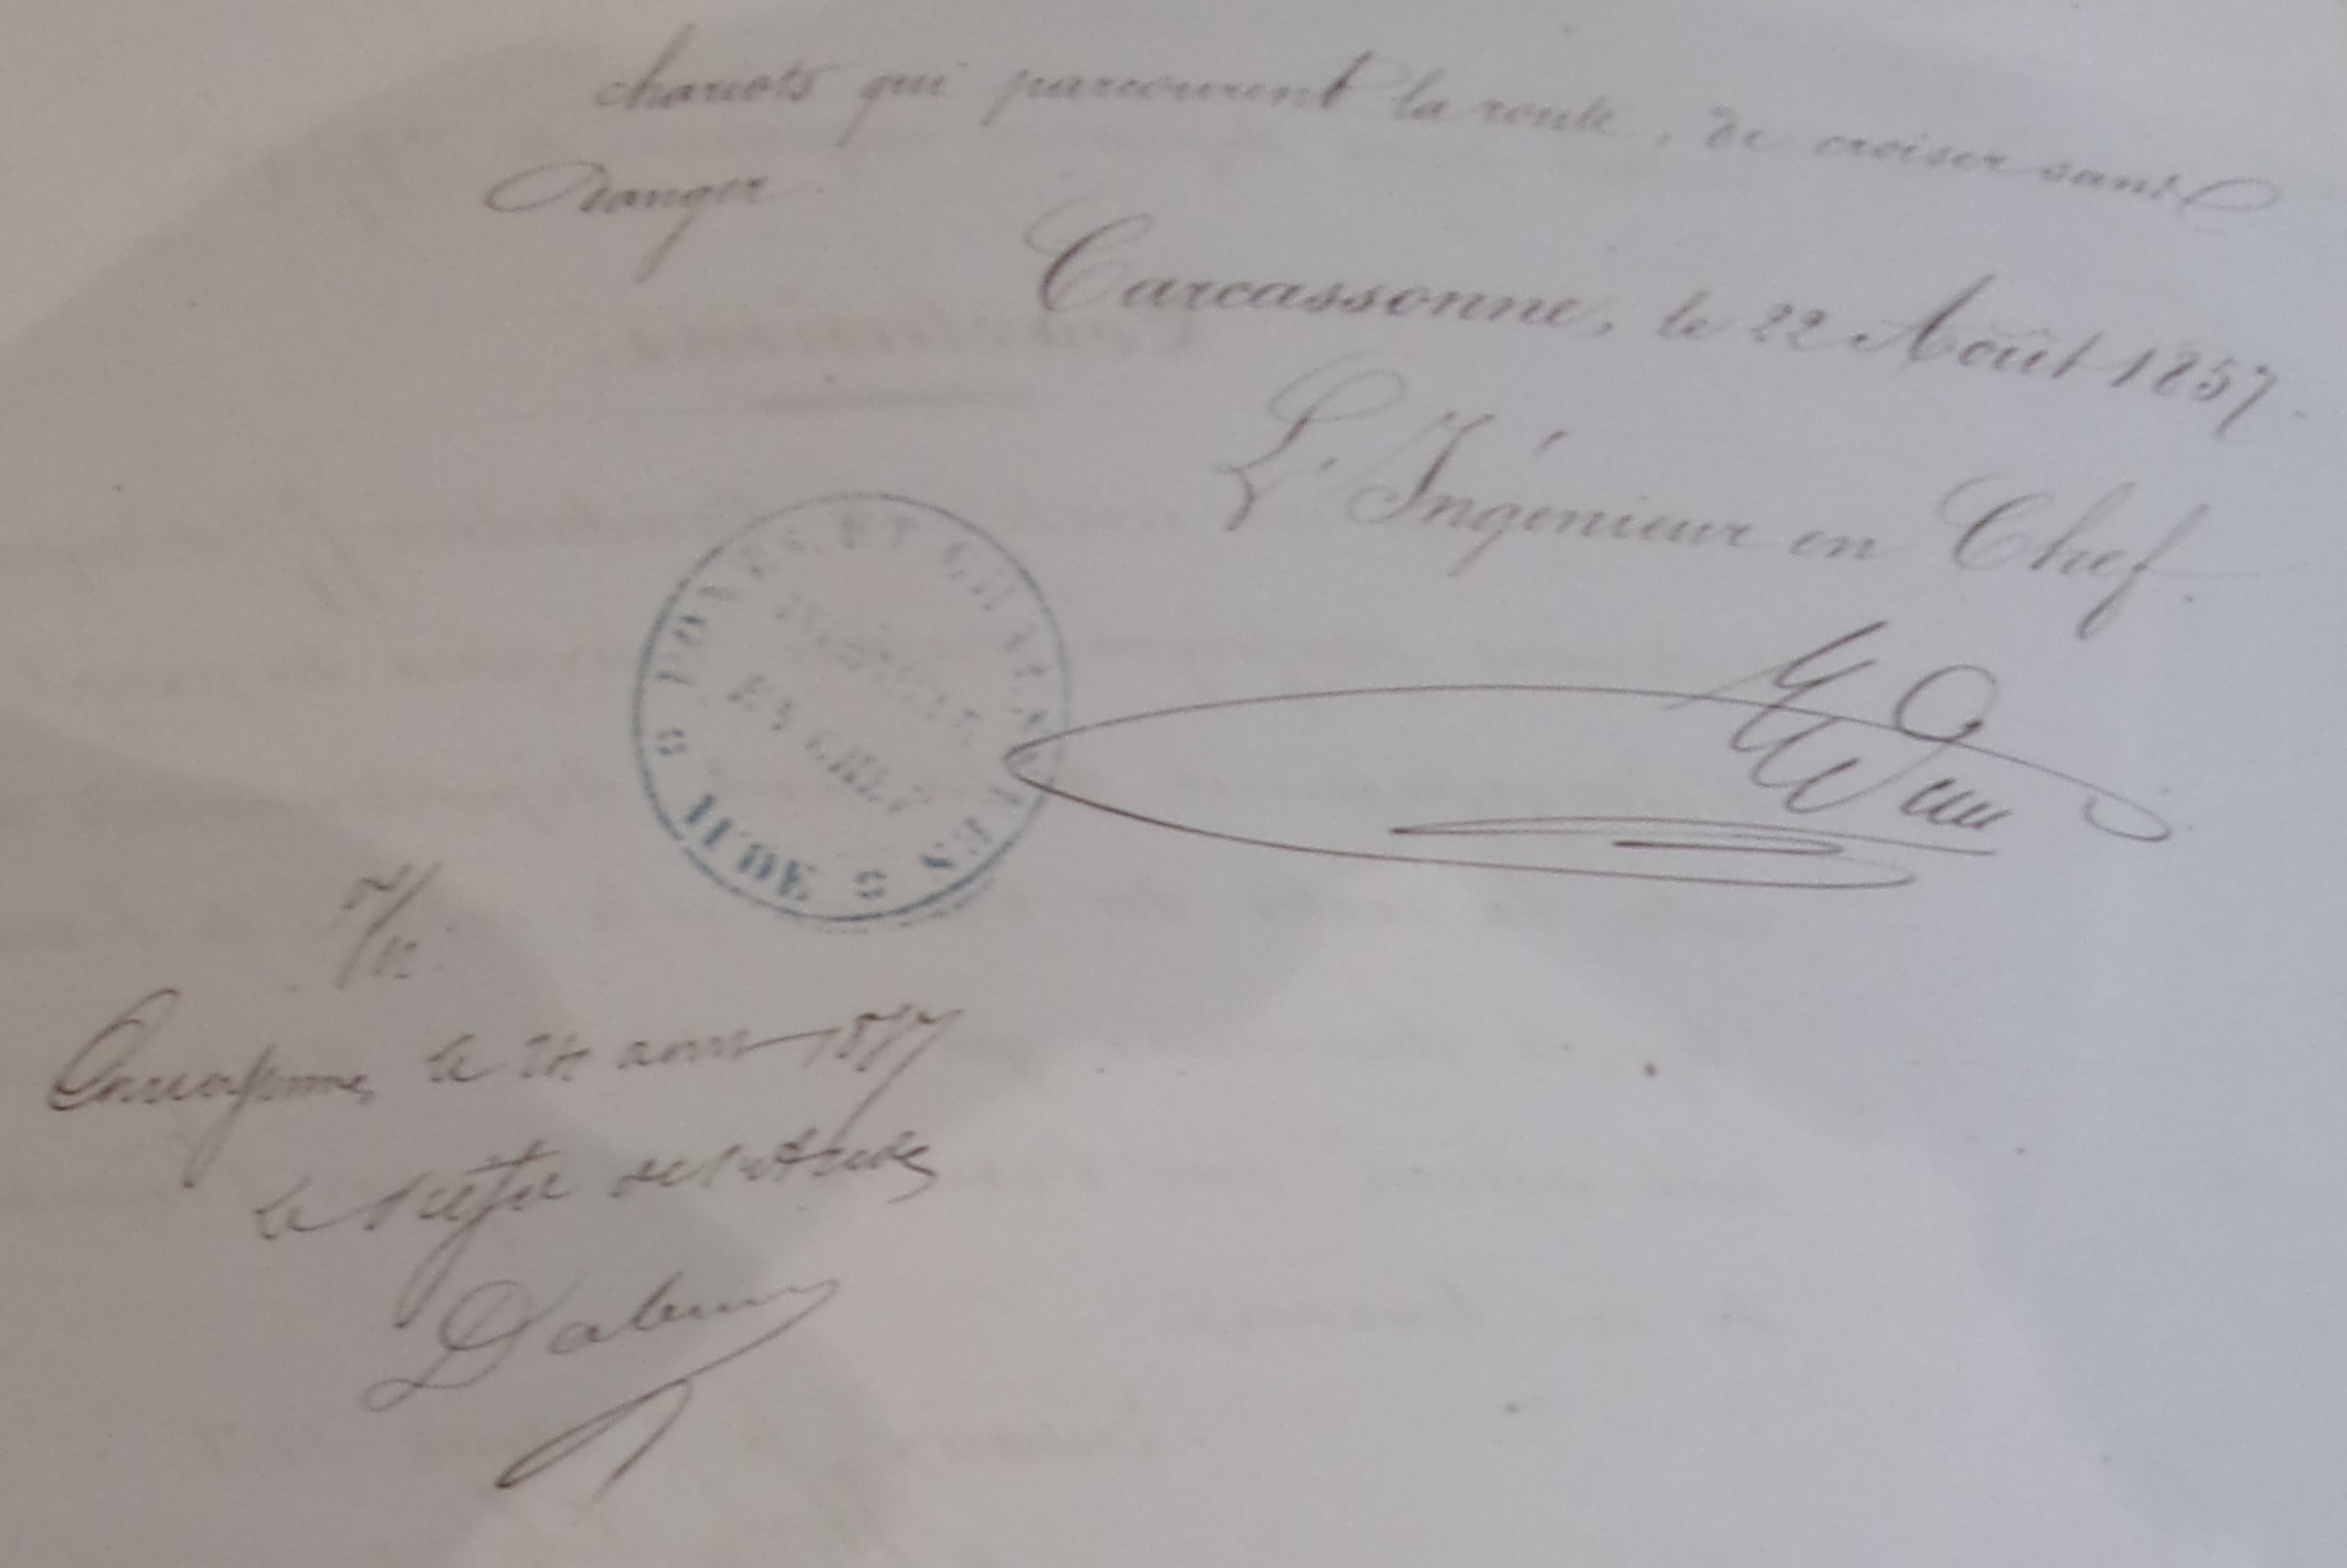 chariots qui parcourent la route, de croiser sans
danger
Carcassonne, le 22 Août 1857.
L'Ingénieur en Chef
PONTS ET CHAUSSÉES
INGÉNIEUR
EN CHEF
AUDE
Carcassonne, le 24 aout 1857
Le Préfet de l'Aude,